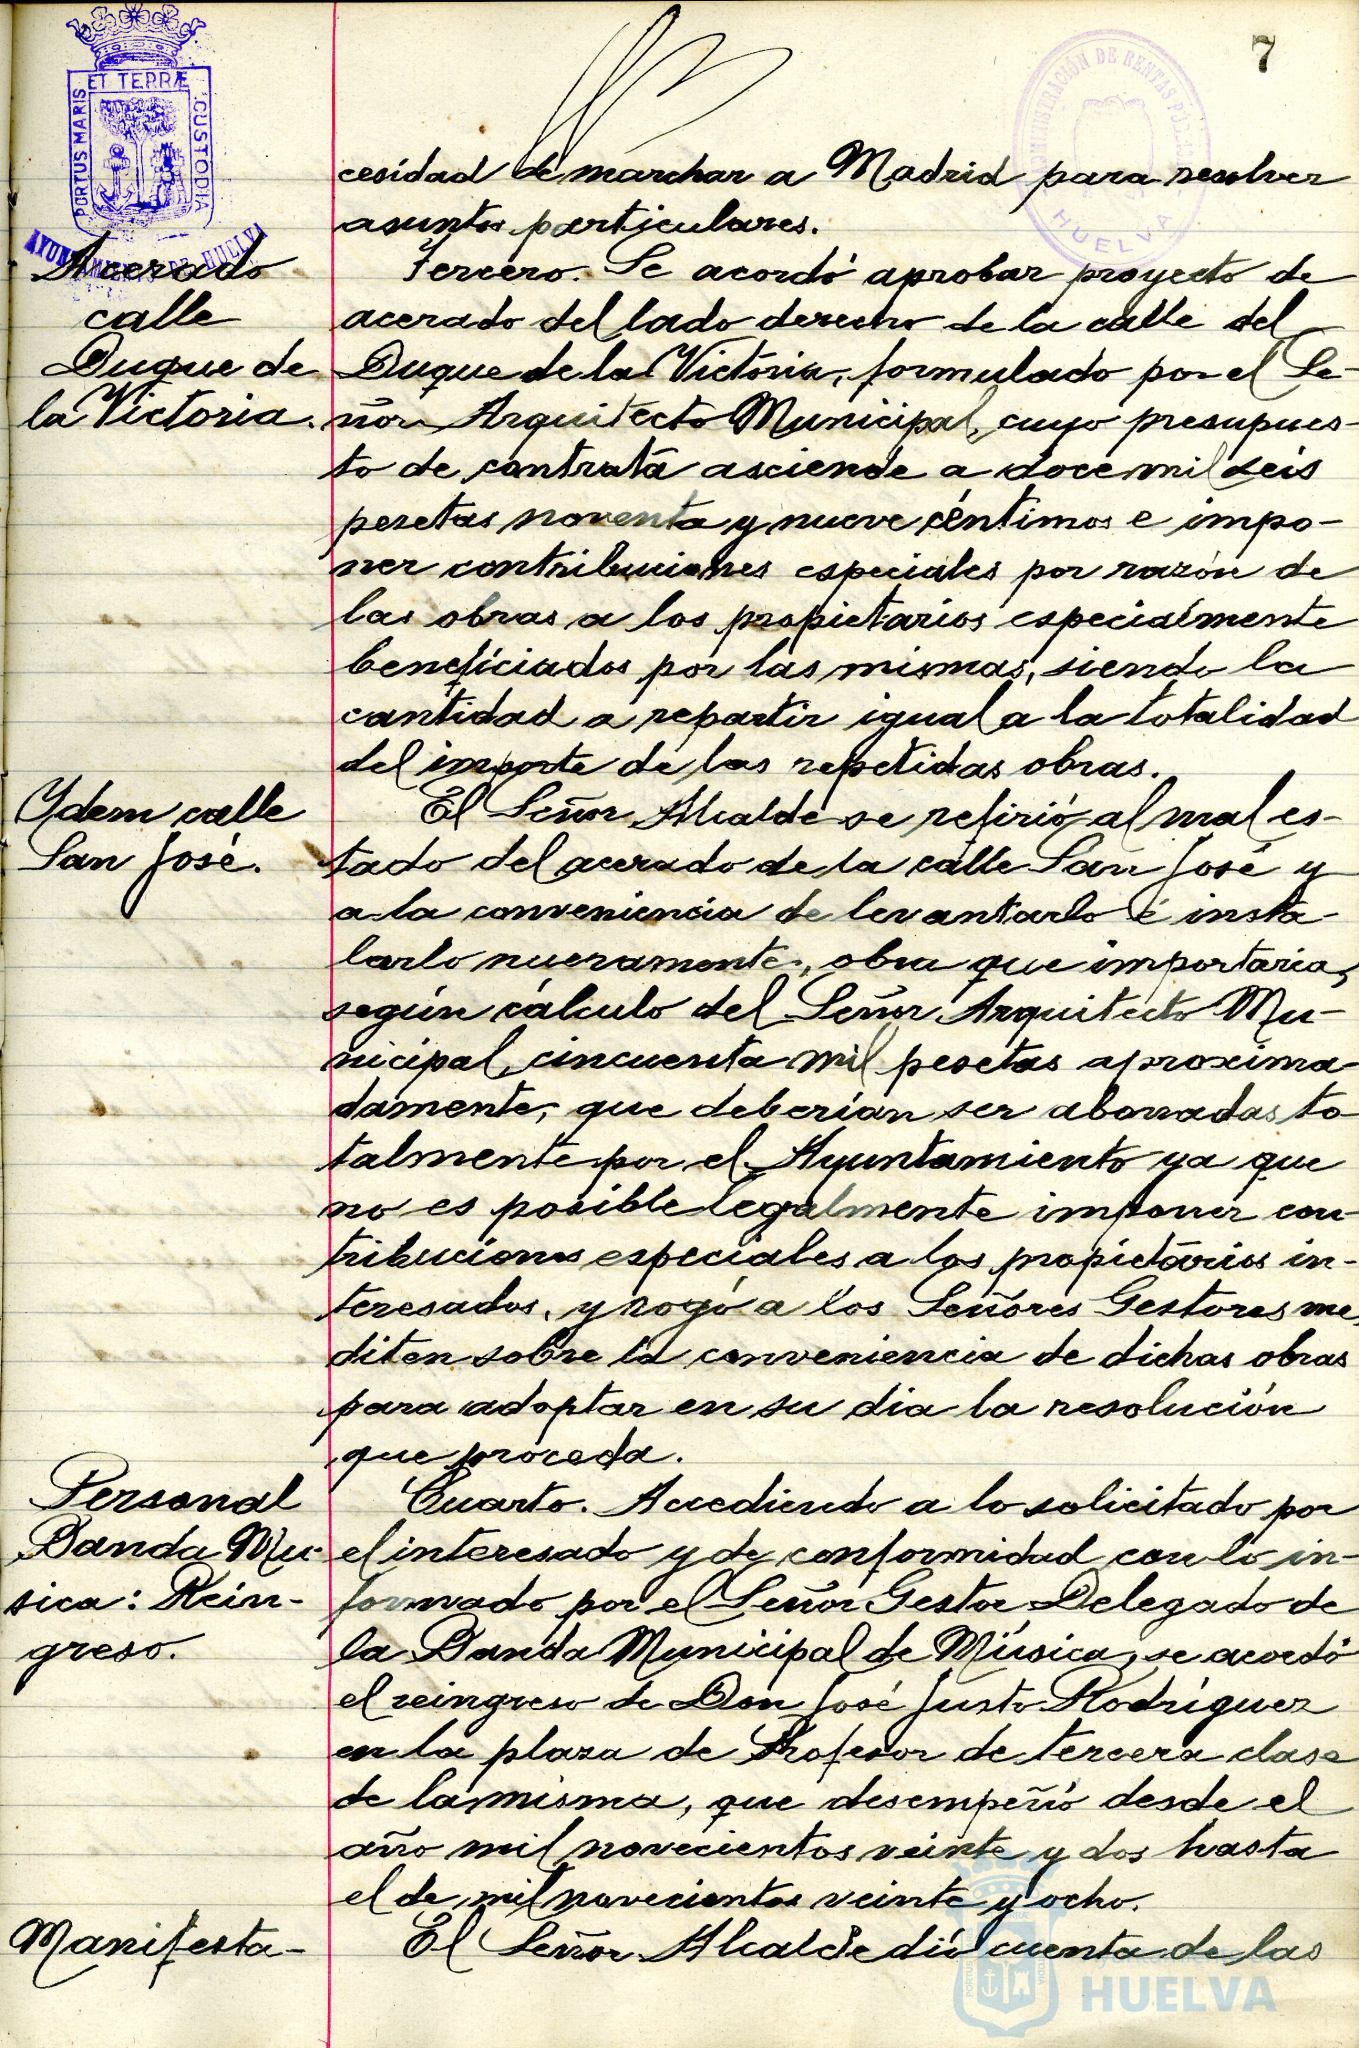 7
PORTUS MARIS ET TERRÆ CUSTODIA
AYUNTAMIENTO DE HUELVA
ADMINISTRACIÓN DE RENTAS PÚBLICAS
HUELVA
cesidad de marchar a Madrid para resolver
asuntos particulares.
Acerado
calle
Duque de
la Victoria.
Tercero. Se acordó aprobar proyecto de
acerado del lado derecho de la calle del
Duque de la Victoria, formulado por el Se-
ñor Arquitecto Municipal, cuyo presupues-
to de contrata asciende a doce mil seis
pesetas noventa y nueve céntimos e impo-
ner contribuciones especiales por razón de
las obras a los propietarios especialmente
beneficiados por las mismas, siendo la
cantidad a repartir igual a la totalidad
del importe de las repetidas obras.
Ydem calle
San José.
El Señor Alcalde se refirió al mal es-
tado del acerado de la calle San José y
a la conveniencia de levantarlo é insta-
larlo nuevamente, obra que importaria,
según cálculo del Señor Arquitecto Mu-
nicipal, cincuenta mil pesetas aproxima
damente, que deberian ser abonadas to
talmente por el Ayuntamiento ya que
no es posible legalmente imponer con
tribuciones especiales a los propietarios in-
teresados, y rogó a los Señores Gestores me
diten sobre la conveniencia de dichas obras
para adoptar en su dia la resolución
que proceda.
Personal
Banda Mu-
sica: Rein-
greso.
Cuarto. Accediendo a lo solicitado por
el interesado y de conformidad con lo in-
formado por el Señor Gestor Delegado de
la Banda Municipal de Música, se acordó
el reingreso de Don José Justo Rodríguez
en la plaza de Profesor de tercera clase
de la misma, que desempeñó desde el
año mil novecientos veinte y dos hasta
el de mil novecientos veinte y ocho.
Manifesta-
El Señor Alcalde dió cuenta de las
Ayuntamiento de
HUELVA